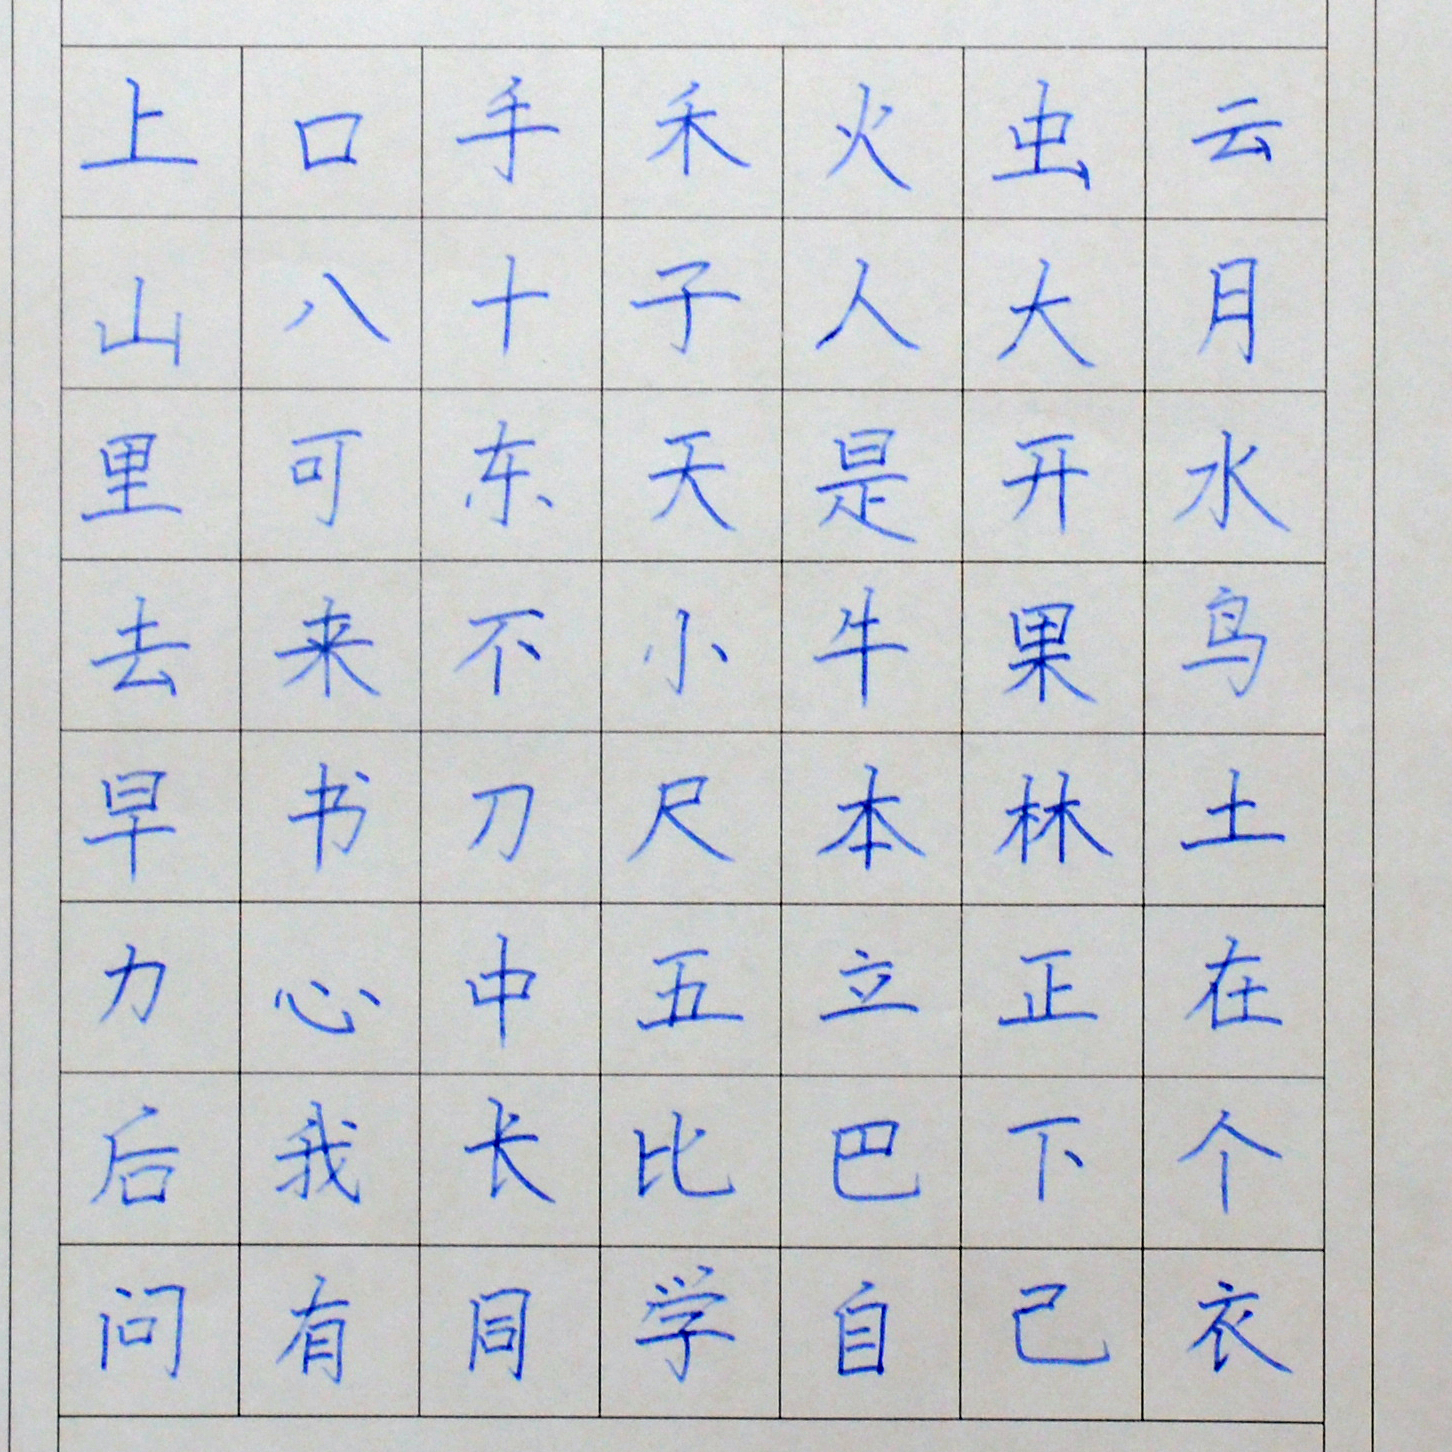 上口手禾火虫云
山八十子人大月
里可东天是开水
去来不小牛果鸟
早书刀尺本林土
力心中五立正在
后我长比巴下个
问有同学自己衣